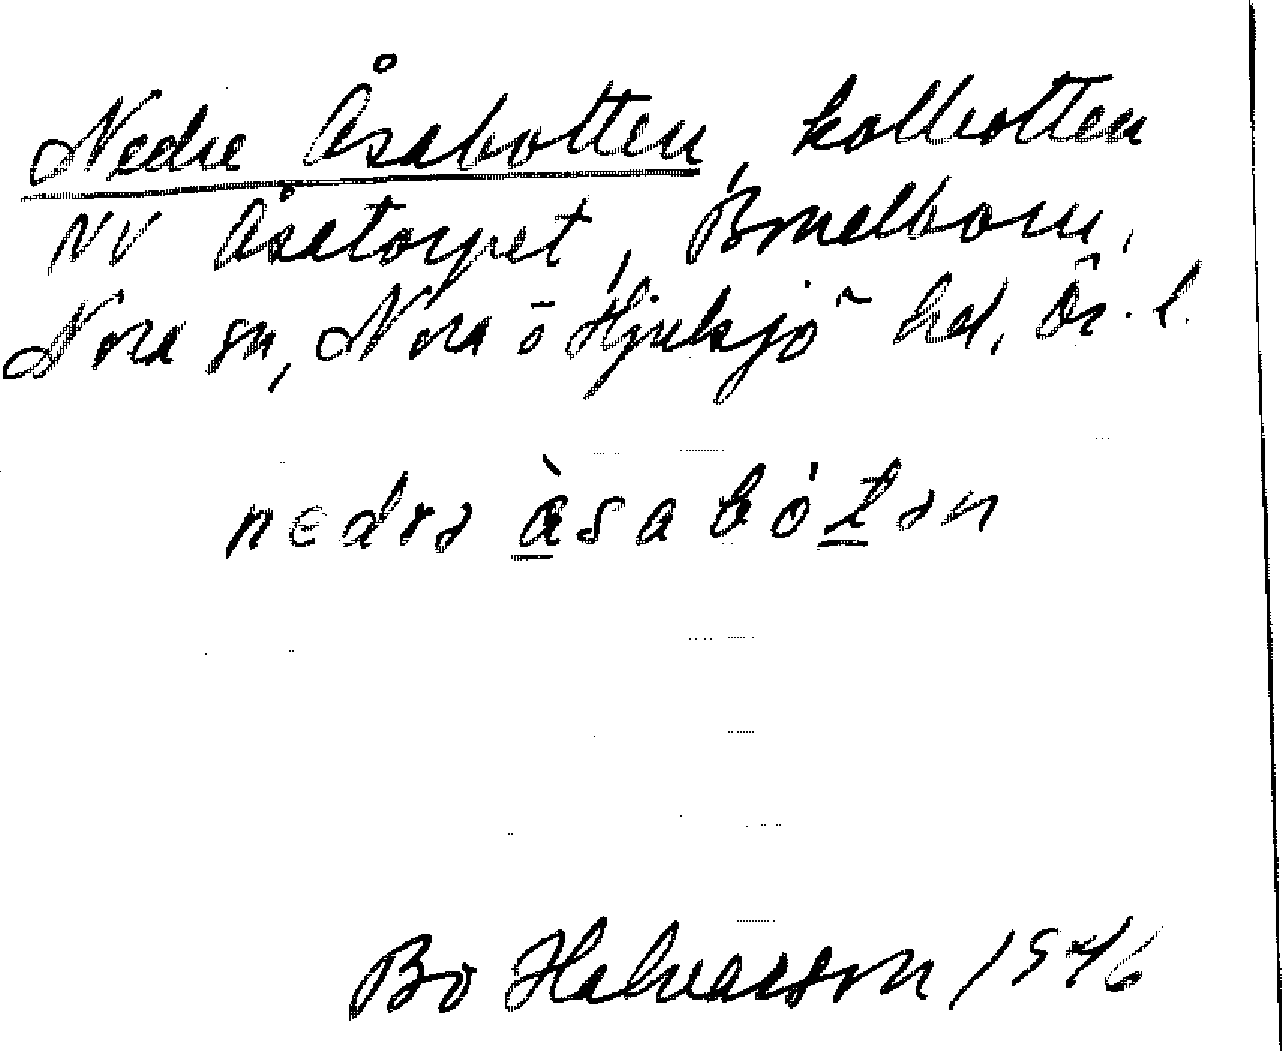 Nedre Åsabotten, kolbotten
NV Åsatorpet, Bondborn,
Nora sn, Nora o Hjulsjö hd, Ör. l.
nedrə àsabótən
Bo Halvarsson 1946